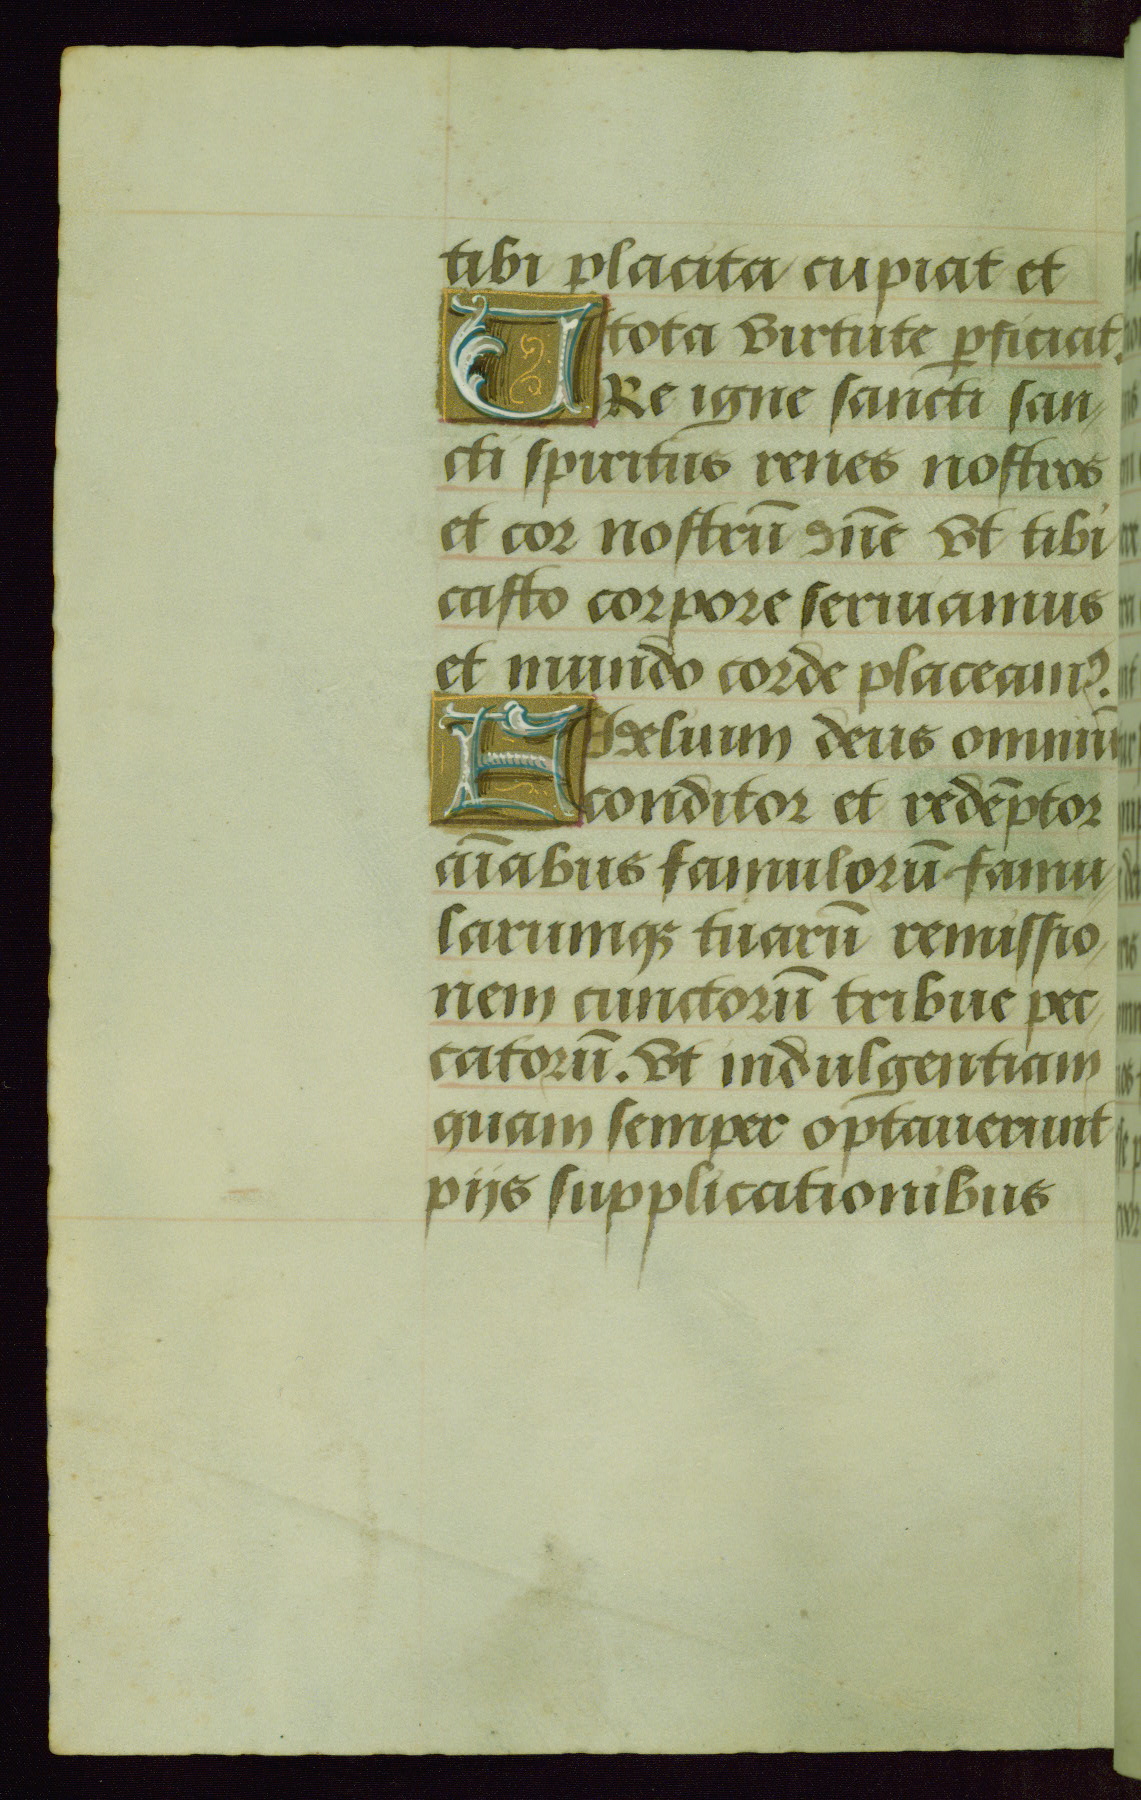 tibi placita cupiat et
tota virtute ꝑficiat.
VRe igne sancti san/
cti spiritus renes nostros
et cor nostrū dn̄e vt tibi
casto corpore seruiamus
et mundo corde placeamꝰ.
Fidelium deus omniū
conditor et redēptor
aīabus famulorū famu/
larumqꝫ tuarū remissio/
nem cunctorū tribue pec/
catorū. vt indulgentiam
quam semper optauerunt
pijs supplicationibus